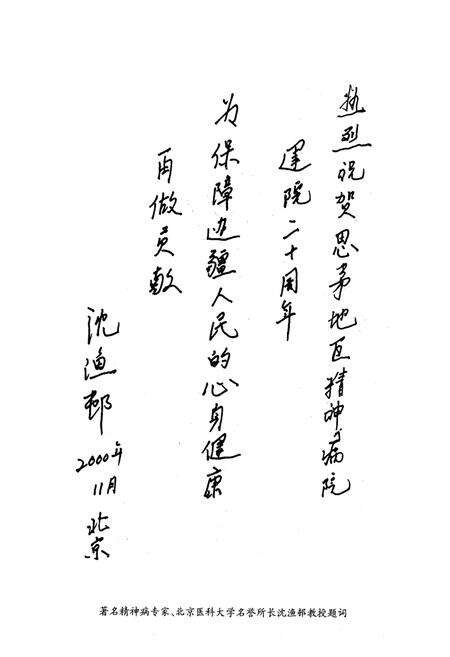 热烈祝贺思茅地区精神病院
建院二十周年
为保障边疆人民的心身健康
再做贡献
沈渔邨
2000年
11月
北京
著名精神病专家、北京医科大学名誉所长沈渔邨教授题词